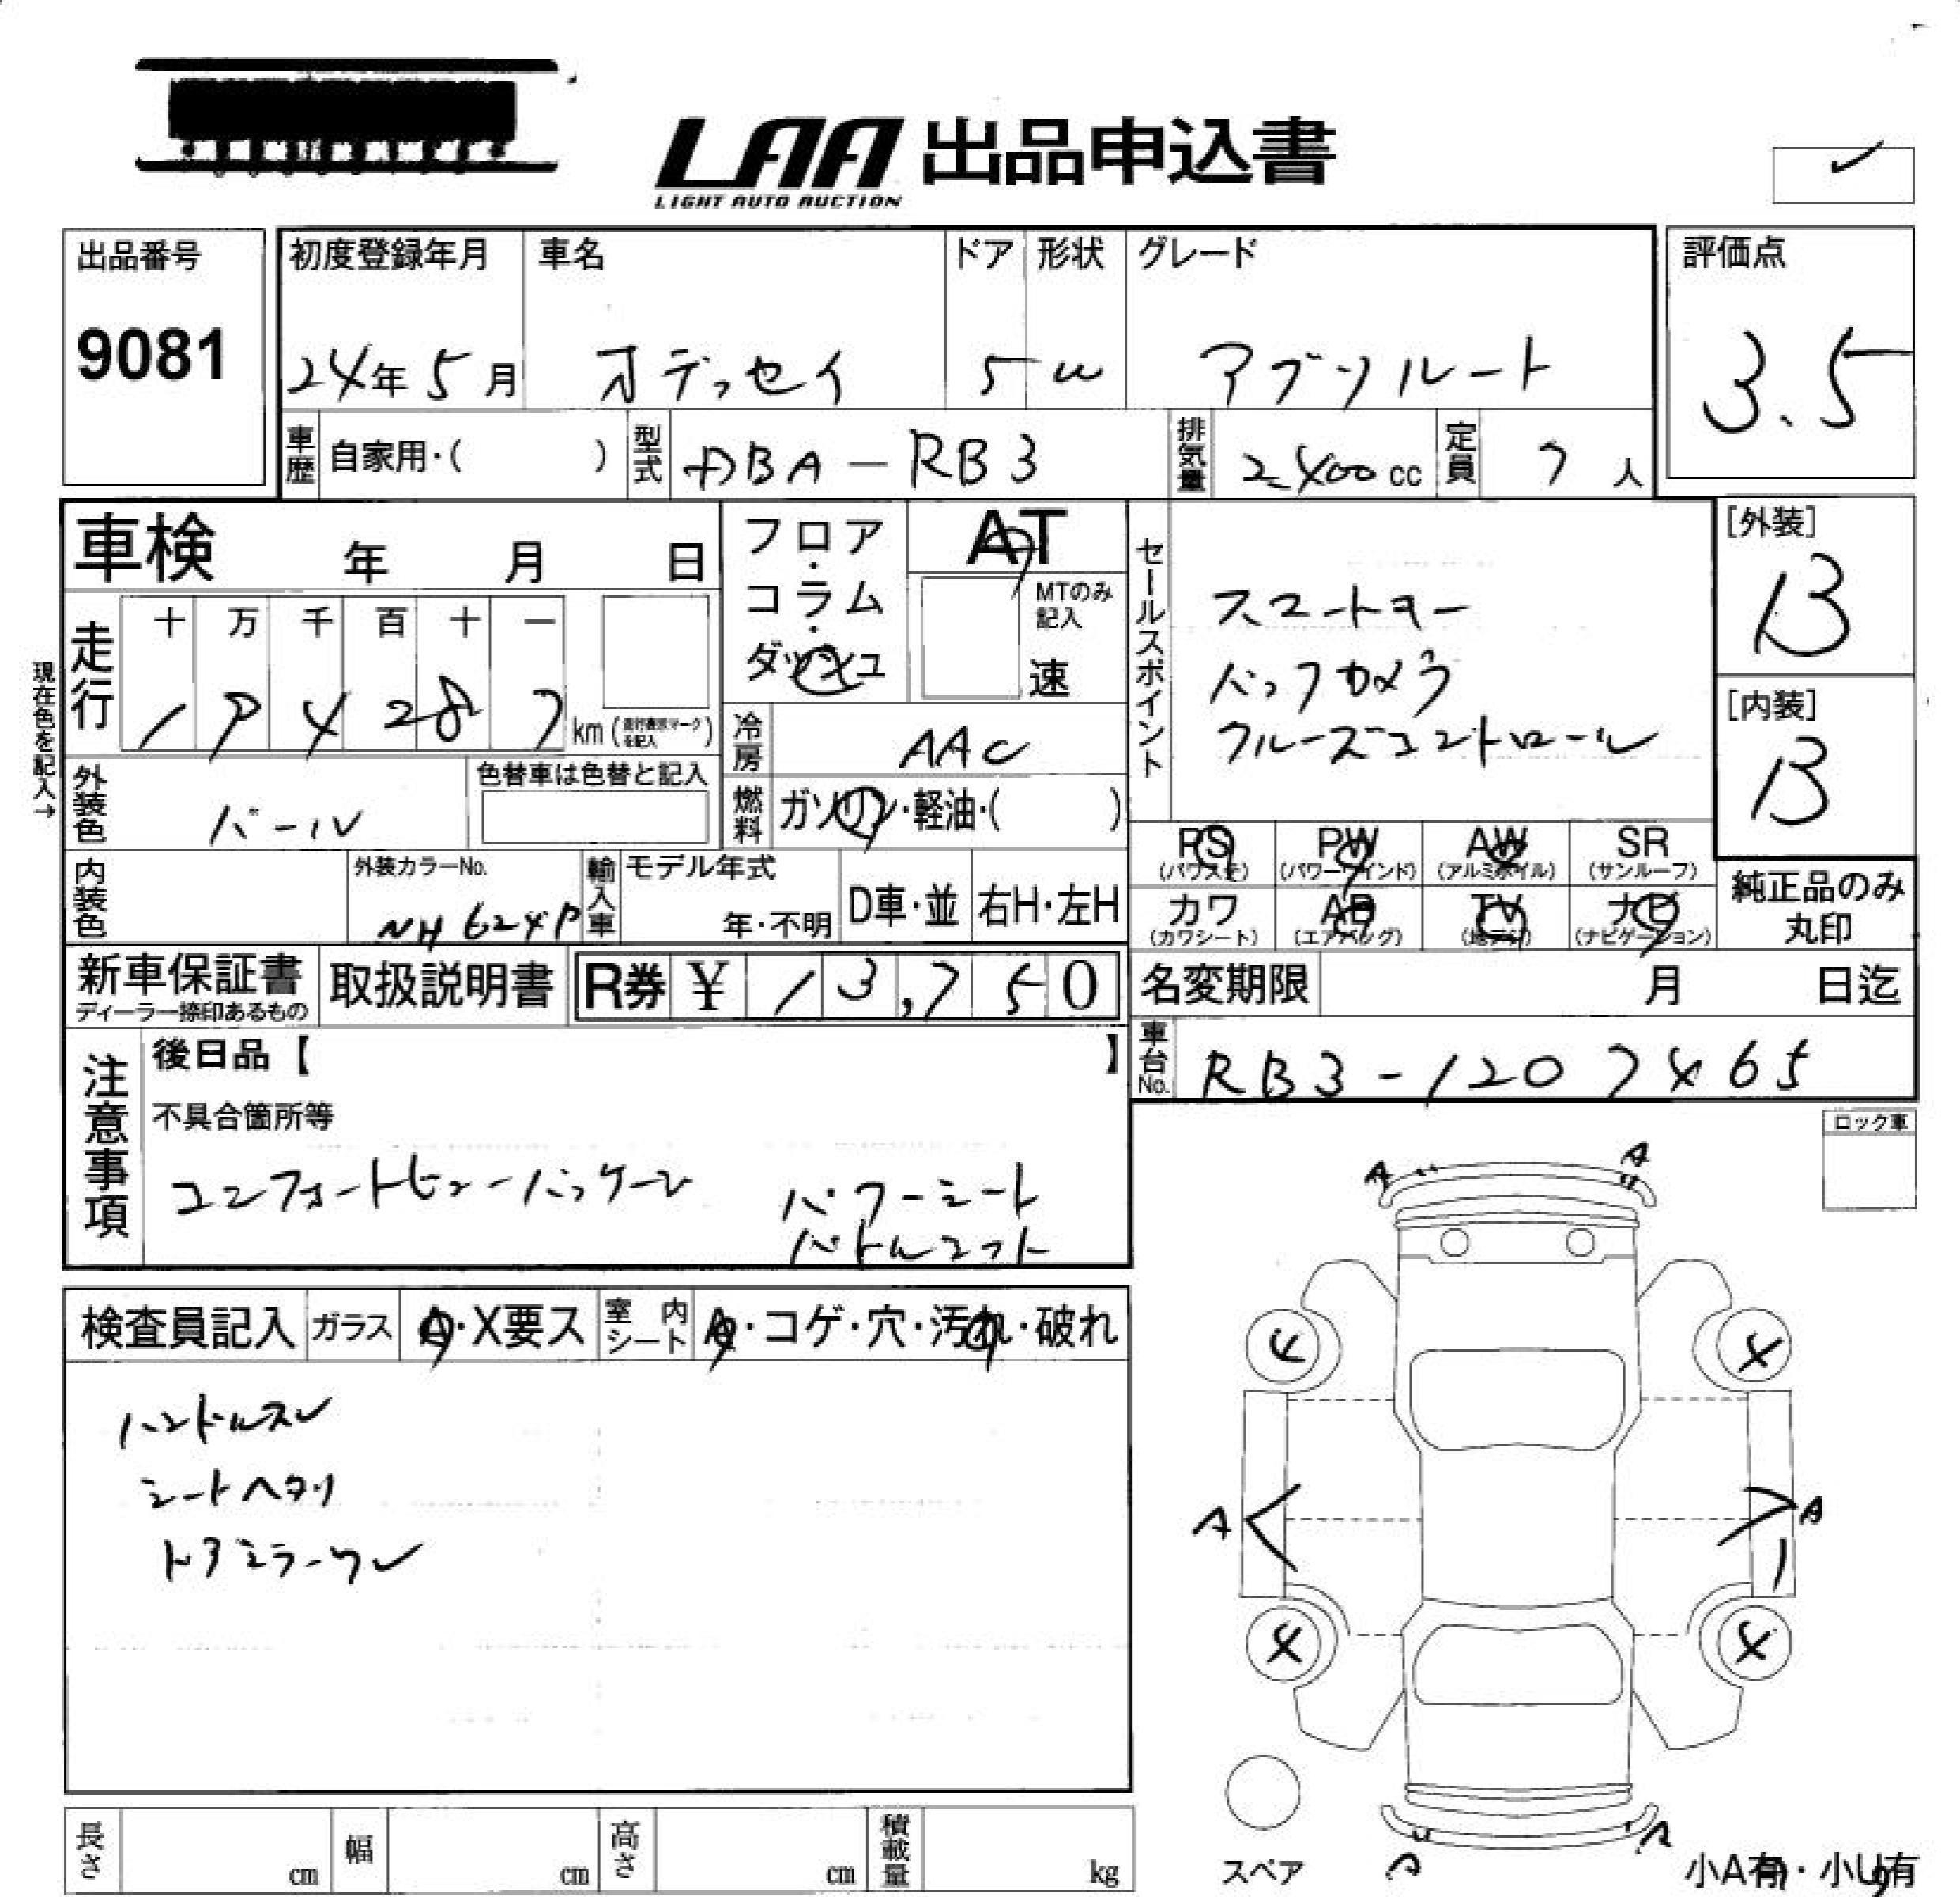 LAA 出品申込書
LIGHT AUTO AUCTION
出品番号
9081
初度登録年月
24年5月
車名
オデッセイ
ドア
5
形状
W
グレード
アブソルート
評価点
3.5
車歴
自家用・( )
型式
DBA-RB3
排気量
2400cc
定員
7人
車検 年 月 日
フロア・コラム・ダッシュ
AT
MTのみ記入
速
セールスポイント
スマートキー
バックカメラ
クルーズコントロール
[外装]
B
[内装]
B
現在色を記入→
走行
十 万 千 百 十 一
1 9 4 2 8 7 km (走行表示マークを記入)
冷房
AAC
燃料
ガソリン・軽油・( )
外装色
パール
色替車は色替と記入
内装色
外装カラーNo.
NH624P
輸入車
モデル年式
年・不明
D車・並
右H・左H
PS PW AW SR
(パワステ) (パワーウインド) (アルミホイル) (サンルーフ)
カワ AB TV ナビ
(カワシート) (エアバッグ) (地デジ) (ナビゲーション)
純正品のみ丸印
新車保証書
ディーラー捺印あるもの
取扱説明書
R券 ¥ 13,750
名変期限 月 日迄
車台No.
RB3-1207465
注意事項
後日品【 】
不具合箇所等
コンフォートビューパッケージ
パワーシート
パドルシフト
ロック車
検査員記入
ガラス
A・X要ス
室内シート
A・コゲ・穴・汚れ・破れ
ハンドルスレ
シートヘタリ
ドアミラーワレ
A A
4 4
A A
4 4
A A
スペア
小A有・小U有
長さ cm
幅 cm
高さ cm
積載量 kg